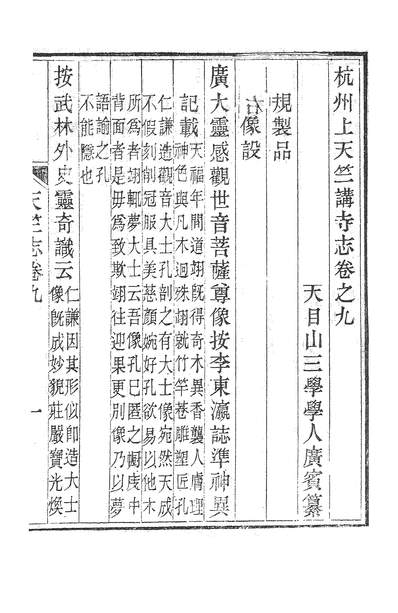 杭州上天竺講寺志卷之九
天目山三學學人廣賓纂
規製品
古像設
廣大靈感觀世音菩薩尊像按李東瀛誌準神異
記載天福年間道翊旣得奇木異香襲人膚理
神色與凡木迥殊翊就竹竿巷雕塑匠孔
仁謙造觀音大士孔剖之有大士像宛然天成
不假刻削冠服具美慈顏婉好孔欲易以他木
所爲者翊輒夢大士云吾像孔巳匿之匵度中
背面者是毋爲致欺翊往迎果更別像乃以夢
語諭之孔
不能隱也
按武林外史靈奇識云仁謙因其形似卽造大士
像旣成妙貌莊嚴寶光煥
天竺志卷九
一